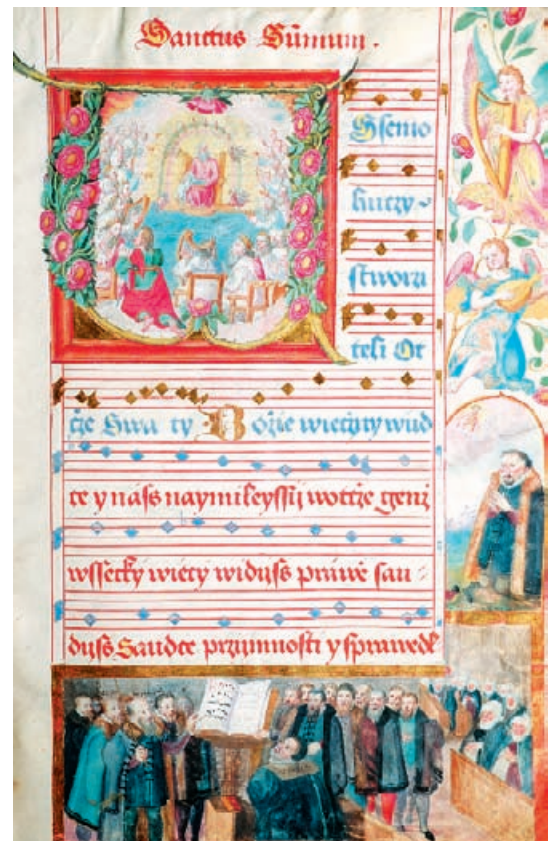 Sanctus Sūmum.
WSsemo
huczy
stworzi
teli Ot
cže Swa ty Božie wiecžny wud
ce y náss naymileyssij wotcže genž
wssecky wiecy widijss práwě sau
dijss Saudce przijmnosti y sprawedl